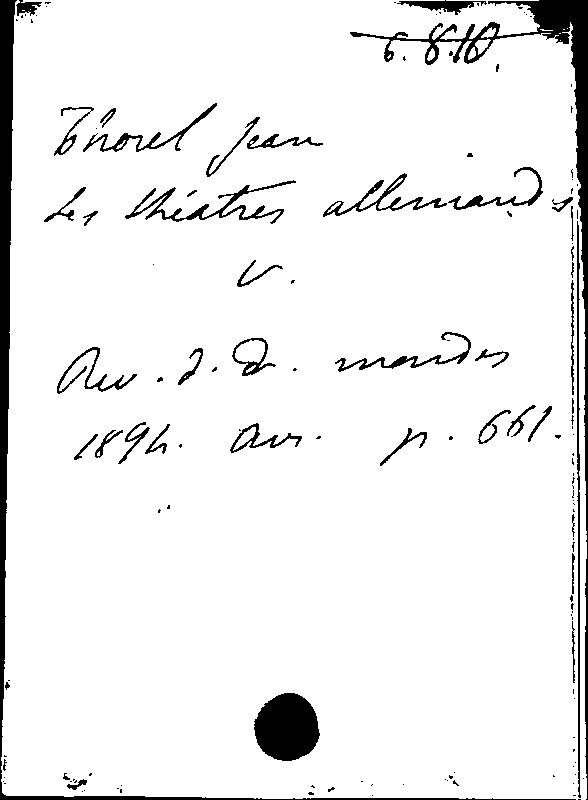 6.8.10.
Thorel Jean
Les théatres allemands
v.
Rev. d. d. mondes
1894. Avr. p. 661.